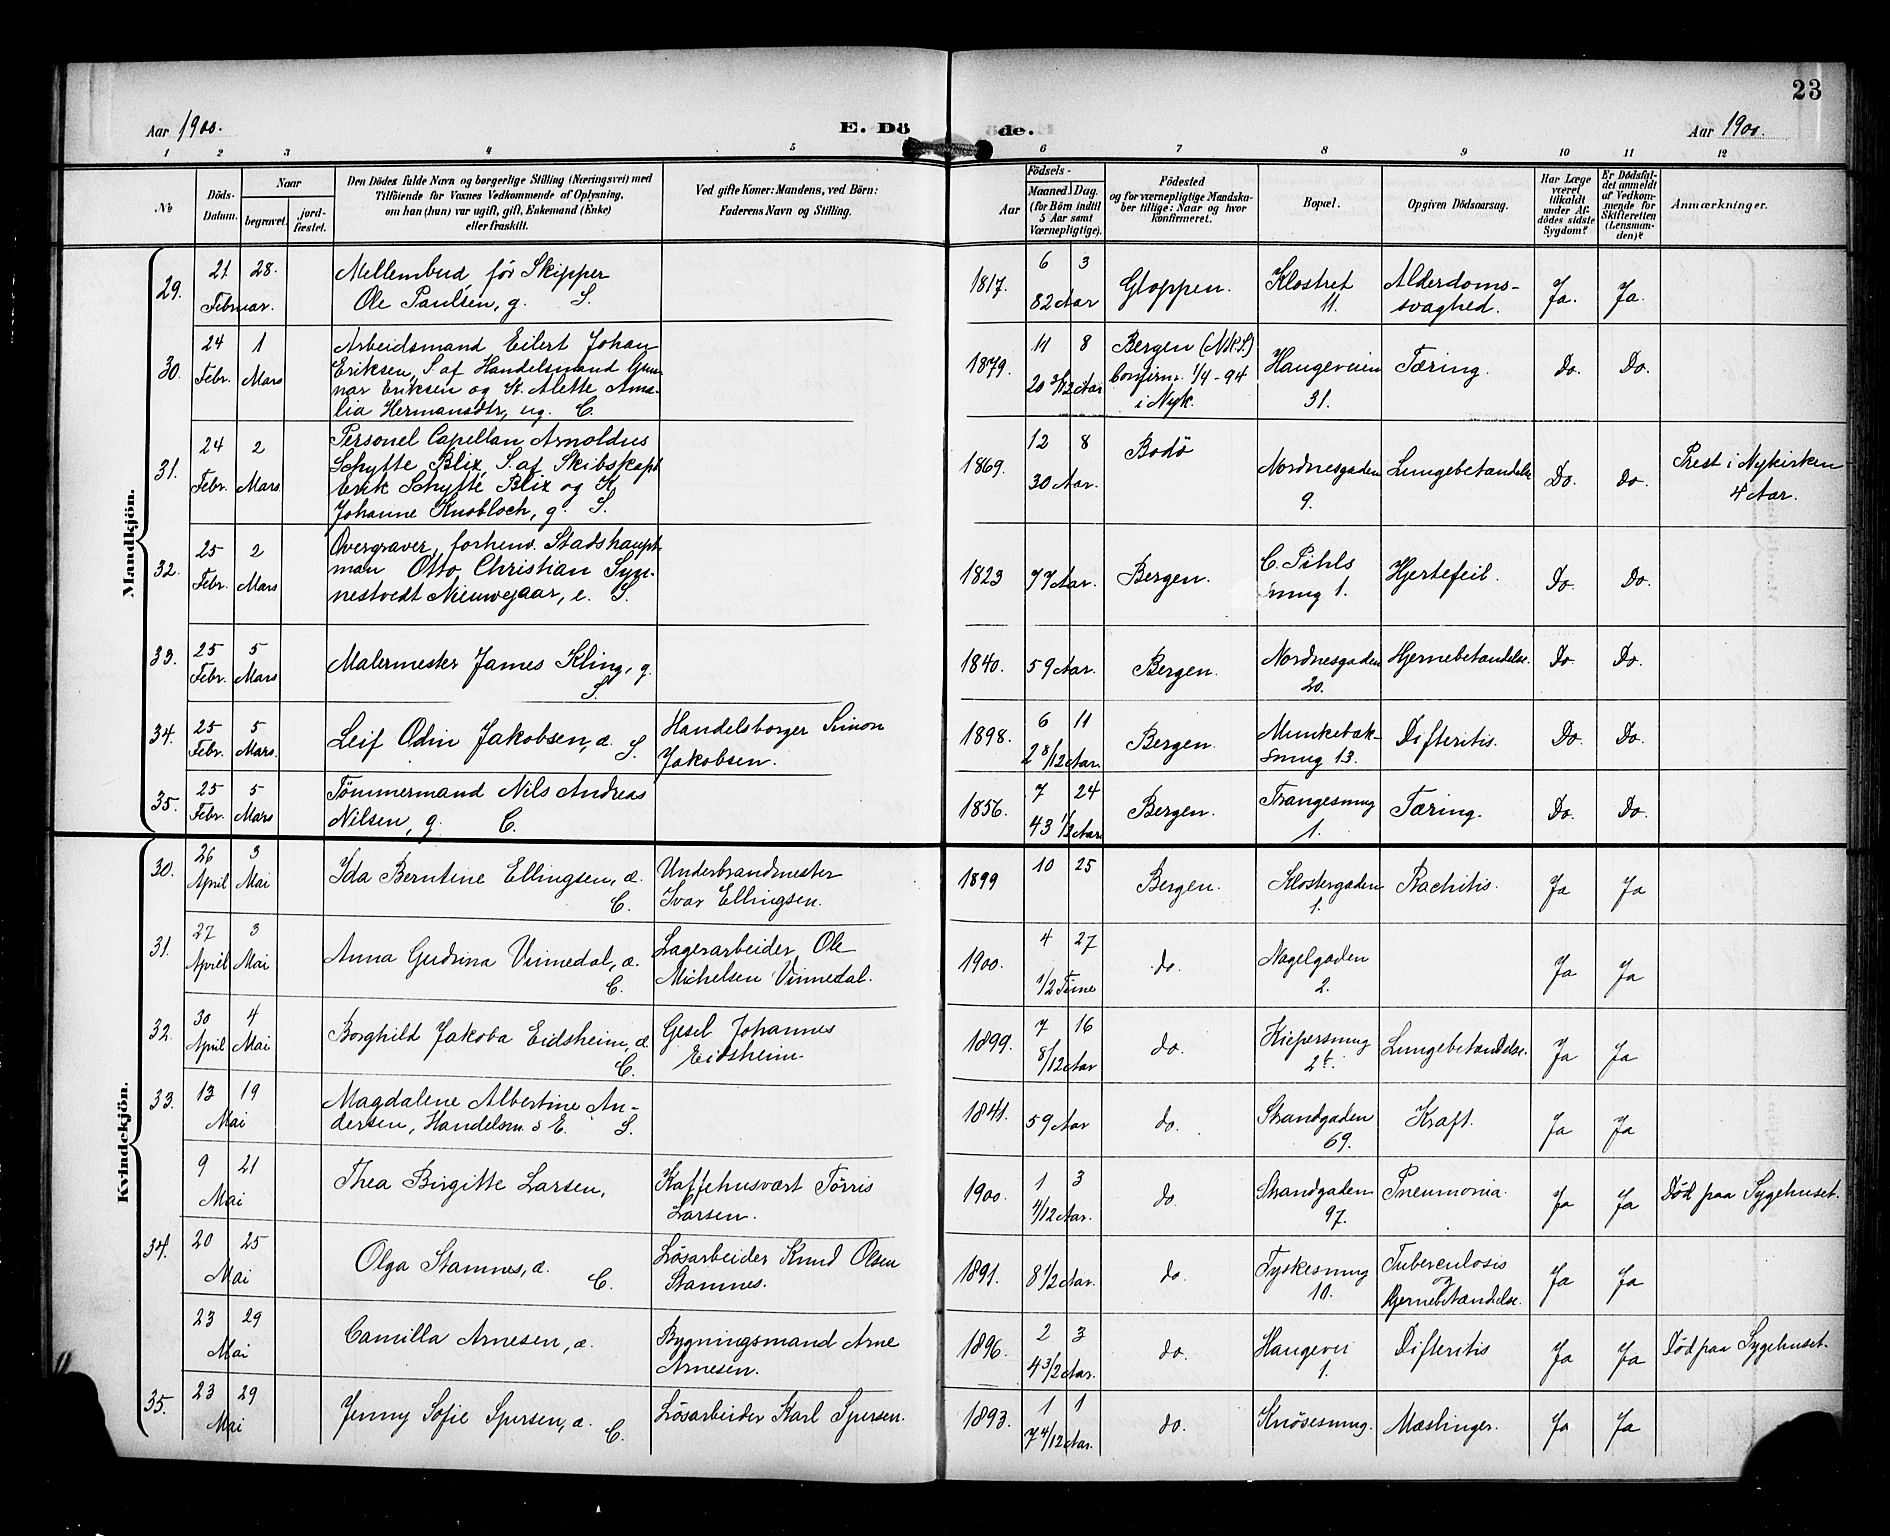 23
Aar 1900.
E. Dö de.
Aar 1900.
1 2 3 4 5 6 7 8 9 10 11 12
No
Döds-Datum.
Naar
begravet.
jord-fæstet.
Den Dödes fulde Navn og borgerlige Stilling (Næringsvei) med
Tilföiende for Voxnes Vedkommende af Oplysning,
om han (hun) var ugift, gift, Enkemand (Enke)
eller fraskilt.
Ved gifte Koner: Mandens, ved Börn:
Faderens Navn og Stilling.
Aar
Födsels-
Maaned. Dag.
(for Börn indtil
5 Aar samt
Værnepligtige).
Födested
og for værnepligtige Mandska-
ber tillige: Naar og hvor
konfirmeret.
Bopæl.
Opgiven Dödsaarsag.
Har Læge
været
tilkaldt
under Af-
dödes sidste
Sygdom?
Er Dödsfal-
det anmeldt
af Vedkom-
mende for
Skifteretten
(Lensman-
den)?
Anmærkninger.
Mandkjön.
29. 21 28.
Februar.
Mellembud, för Skipper
Ole Paulsen, g. S.
1817. 6 3
82 Aar
Gloppen.
Klostret
11.
Alderdoms-
svaghed.
Ja. Ja.
30. 24 1
Febr. Mars
Arbeidsmand Eilert Johan
Eriksen, S. af Handelsmand Gun-
nar Eriksen og H. Alette Ama-
lia Hermansdtr, ug. C.
1879. 11 8
20 3/12 Aar
Bergen (Nyk.S.)
Confirm. 1/4-94
i Nyk.
Haugeveien
31.
Tæring.
Do. Do.
31. 24 2
Febr. Mars
Personel Capellan Arnoldus
Schytte Blix, S. af Skibskapt
Erik Schytte Blix og H.
Johanne Knobloch, g. S.
1869. 12 8
30 Aar.
Bodö
Nordnesgaden
9.
Lungebetændelse
Do. Do.
Prest i Nykirken
4 Aar.
32. 25 2
Febr. Mars
Overgraver, forhenv. Stadshaupt-
man Otto Christian Syn-
nestvedt Nieuwejaar, e. S.
1823 77 Aar.
Bergen.
C. Pihls
smug 1.
Hjertefeil.
Do. Do.
33. 25 5
Febr. Mars
Malermester James Kling, g.
S.
1840. 59 Aar.
Bergen.
Nordnesgaden
20.
Hjernebetændelse.
Do. Do.
34. 25 5
Febr. Mars.
Leif Odin Jakobsen, æ. S.
Handelsborger Simon
Jakobsen.
1898. 6 11
2 8/12 Aar.
Bergen.
Munkebæk-
smug 13.
Difteritis.
Do. Do.
35. 25 5
Febr. Mars
Tömmermand Nils Andreas
Nilsen, g. C.
1856. 7 24
43 1/2 Aar.
Bergen.
Trangesmug
1.
Tæring.
Do. Do.
Kvindekjön.
30. 26 3
April Mai
Ida Berntine Ellingsen, æ.
C.
Underbrandmester
Ivar Ellingsen.
1899 10 25
Bergen.
Klostergaden
1.
Rachitis.
Ja Ja
31. 27 3
April Mai
Anna Gudrina Vinnedal, æ.
C.
Lagerarbeider Ole
Michelsen Vinnedal.
1900. 4 27
1/2 Time
do.
Nagelgaden
2.
Ja Ja
32. 30 4
April Mai
Borghild Jakoba Eidsheim, æ.
C.
Gesel Johannes
Eidsheim.
1899. 7 16
8/12 Aar
do.
Kiepersmug
2b.
Lungebetændelse.
Ja Ja
33. 13 19
Mai
Magdalene Albertine An-
dersen, Handelsm.s E. S.
1841. 59 Aar
do.
Strandgaden
69.
Kræft.
Ja Ja
9 21
Mai
Thea Birgitte Larsen,
Kaffehusvært Törris
Larsen.
1900. 1 3
4/12 Aar.
do
Strandgaden
97.
Pneumonia.
Ja Ja
Död paa Sygehuset.
34. 20 25
Mai
Olga Stamnes, æ. C.
Lösarbeider Knud Olsen
Stamnes.
1891. 8 1/2 Aar.
do.
Tyskesmug
10.
Tuberculosis
og
Hjernebetændelse.
Ja Ja
23 29
Mai
Camilla Arnesen, æ.
Bygningsmand Arne
Arnesen.
1896. 2 3
4 3/12 Aar.
do.
Haugevei
1.
Difteritis
Ja Ja
Död paa Sygehuset.
35. 23 29
Mai
Jenny Sofie Spersen, æ. C.
Lösarbeider Karl Spersen.
1893. 1 1
7 4/12 Aar.
do.
Knösesmug.
Mæslinger.
Ja Ja